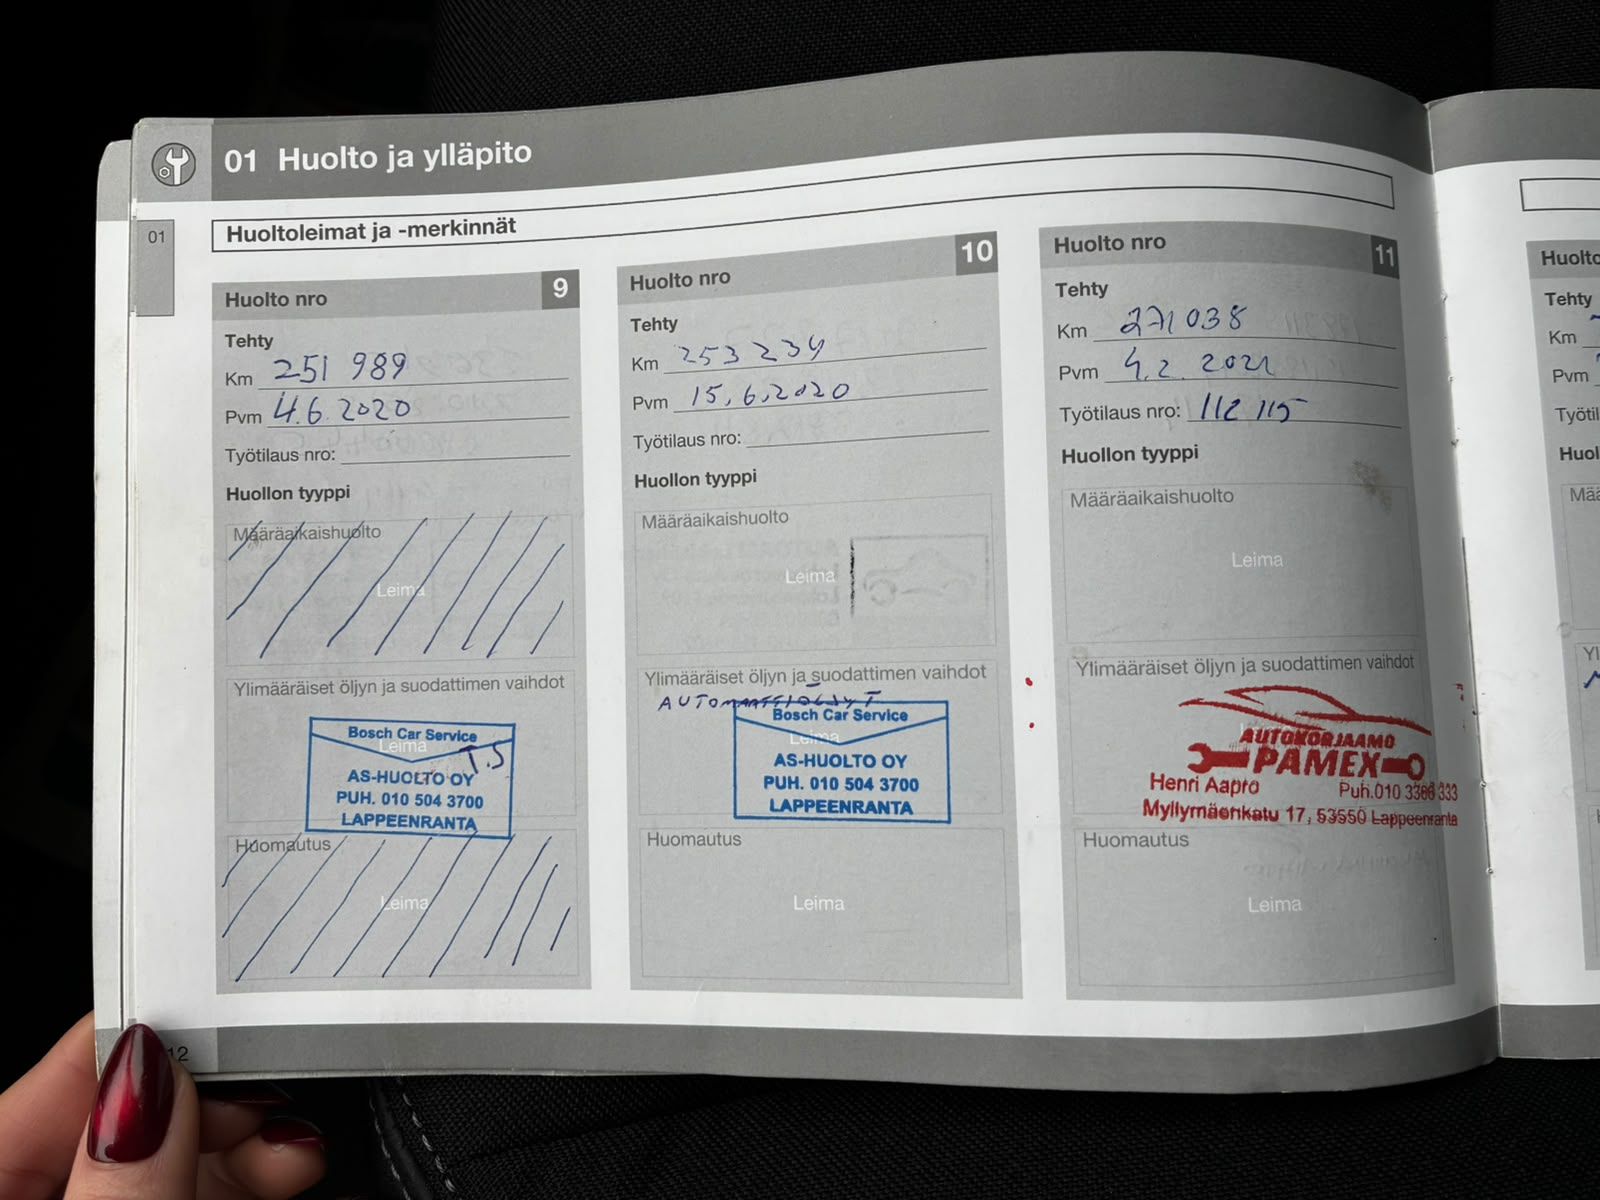 01 Huolto ja ylläpito
01
Huoltoleimat ja -merkinnät
Huolto nro 9
Tehty
Km 251 989
Pvm 4.6.2020
Työtilaus nro:
Huollon tyyppi
Määräaikaishuolto
Leima
Ylimääräiset öljyn ja suodattimen vaihdot
Leima
Bosch Car Service
T.S
AS-HUOLTO OY
PUH. 010 504 3700
LAPPEENRANTA
Huomautus
Leima
Huolto nro 10
Tehty
Km 253 234
Pvm 15.6.2020
Työtilaus nro:
Huollon tyyppi
Määräaikaishuolto
Leima
Ylimääräiset öljyn ja suodattimen vaihdot
AUTOMAATTIÖLJYT
Bosch Car Service
Leima
AS-HUOLTO OY
PUH. 010 504 3700
LAPPEENRANTA
Huomautus
Leima
Huolto nro 11
Tehty
Km 271 038
Pvm 4.2.
Työtilaus nro: 112 115
Huollon tyyppi
Määräaikaishuolto
Leima
Ylimääräiset öljyn ja suodattimen vaihdot
AUTOKORJAAMO
PAMEX
Henri Aapro Puh.010 3386 333
Myllymäenkatu 17, 53550 Lappeenranta
Huomautus
Leima
12
Tehty
Km
Pvm